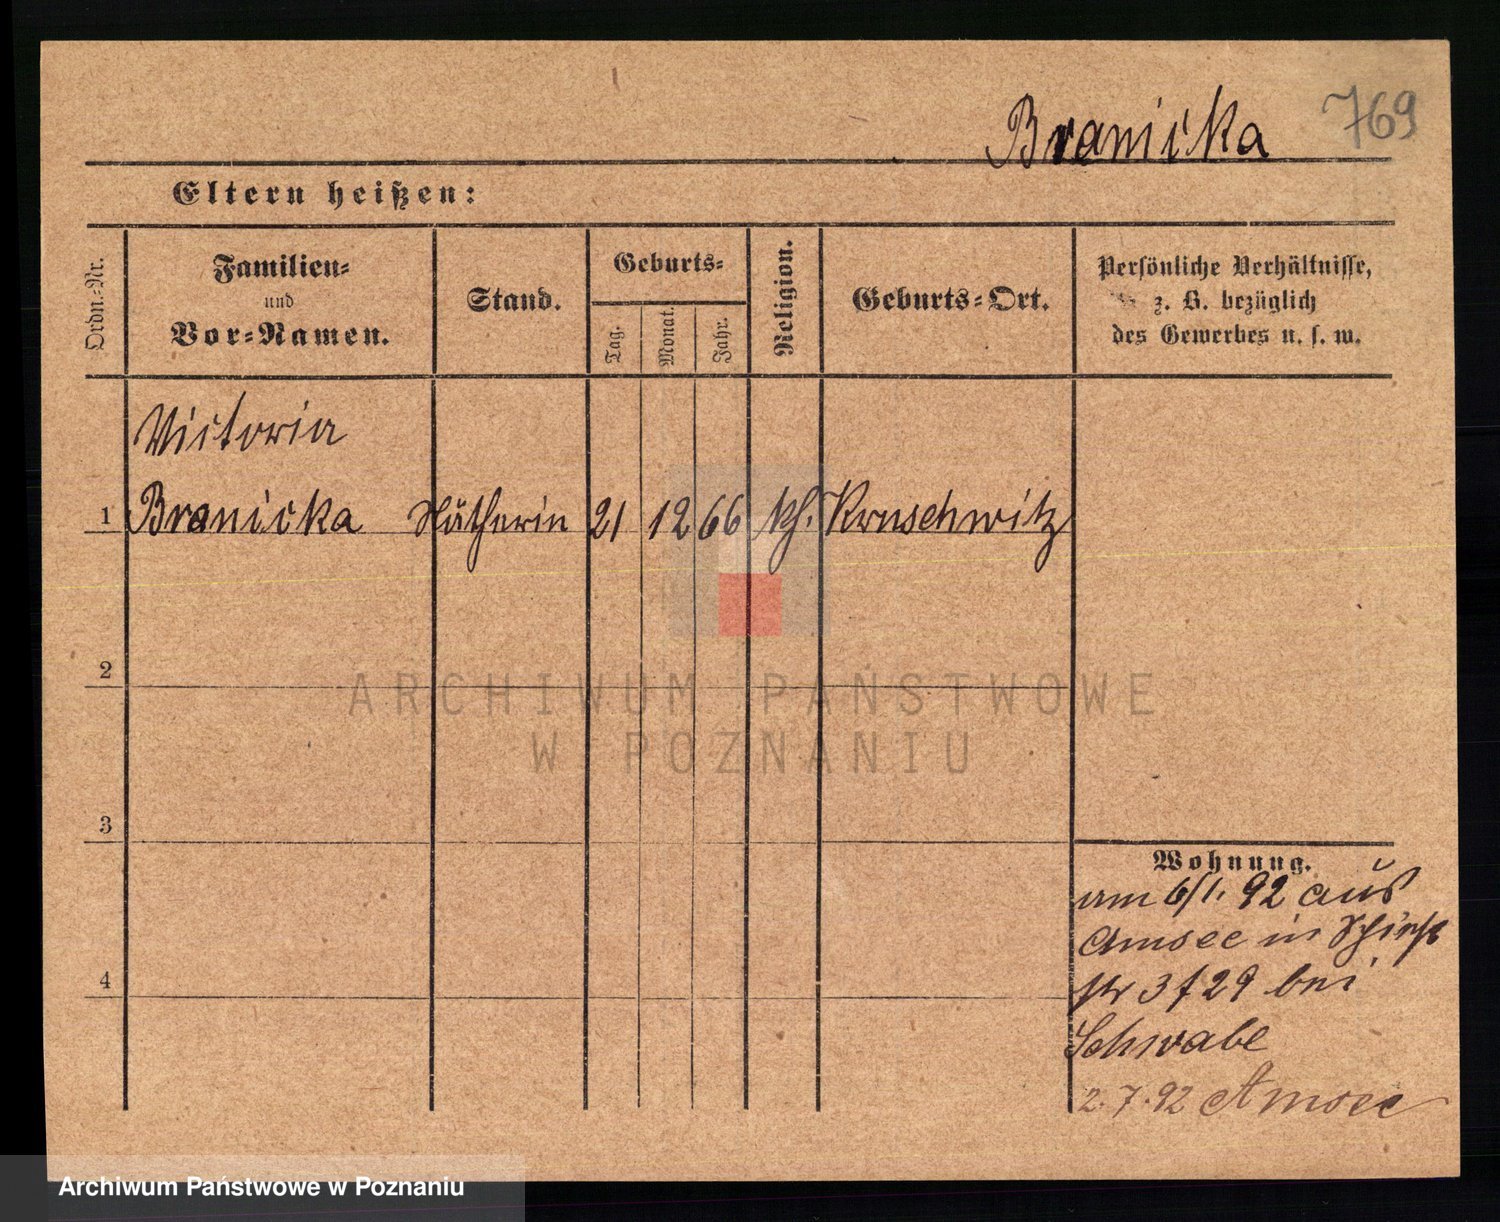 Branicka 769
Eltern heißen:
Ordn.-Nr.
Familien-
und
Vor-Namen.
Stand.
Geburts-
Tag.
Monat.
Jahr.
Religion.
Geburts-Ort.
Persönliche Verhältnisse,
z. B. bezüglich
des Gewerbes u. s. w.
Victoria
1 Branicka Nätherin 21 12 66 kh. Kruschwitz
2
3
4
Wohnung.
am 6/1. 92 aus
Amsee in
str 3 f 29 bei
Schwabe
2.7.92 Amsee
ARCHIWUM PAŃSTWOWE
W POZNANIU
Archiwum Państwowe w Poznaniu